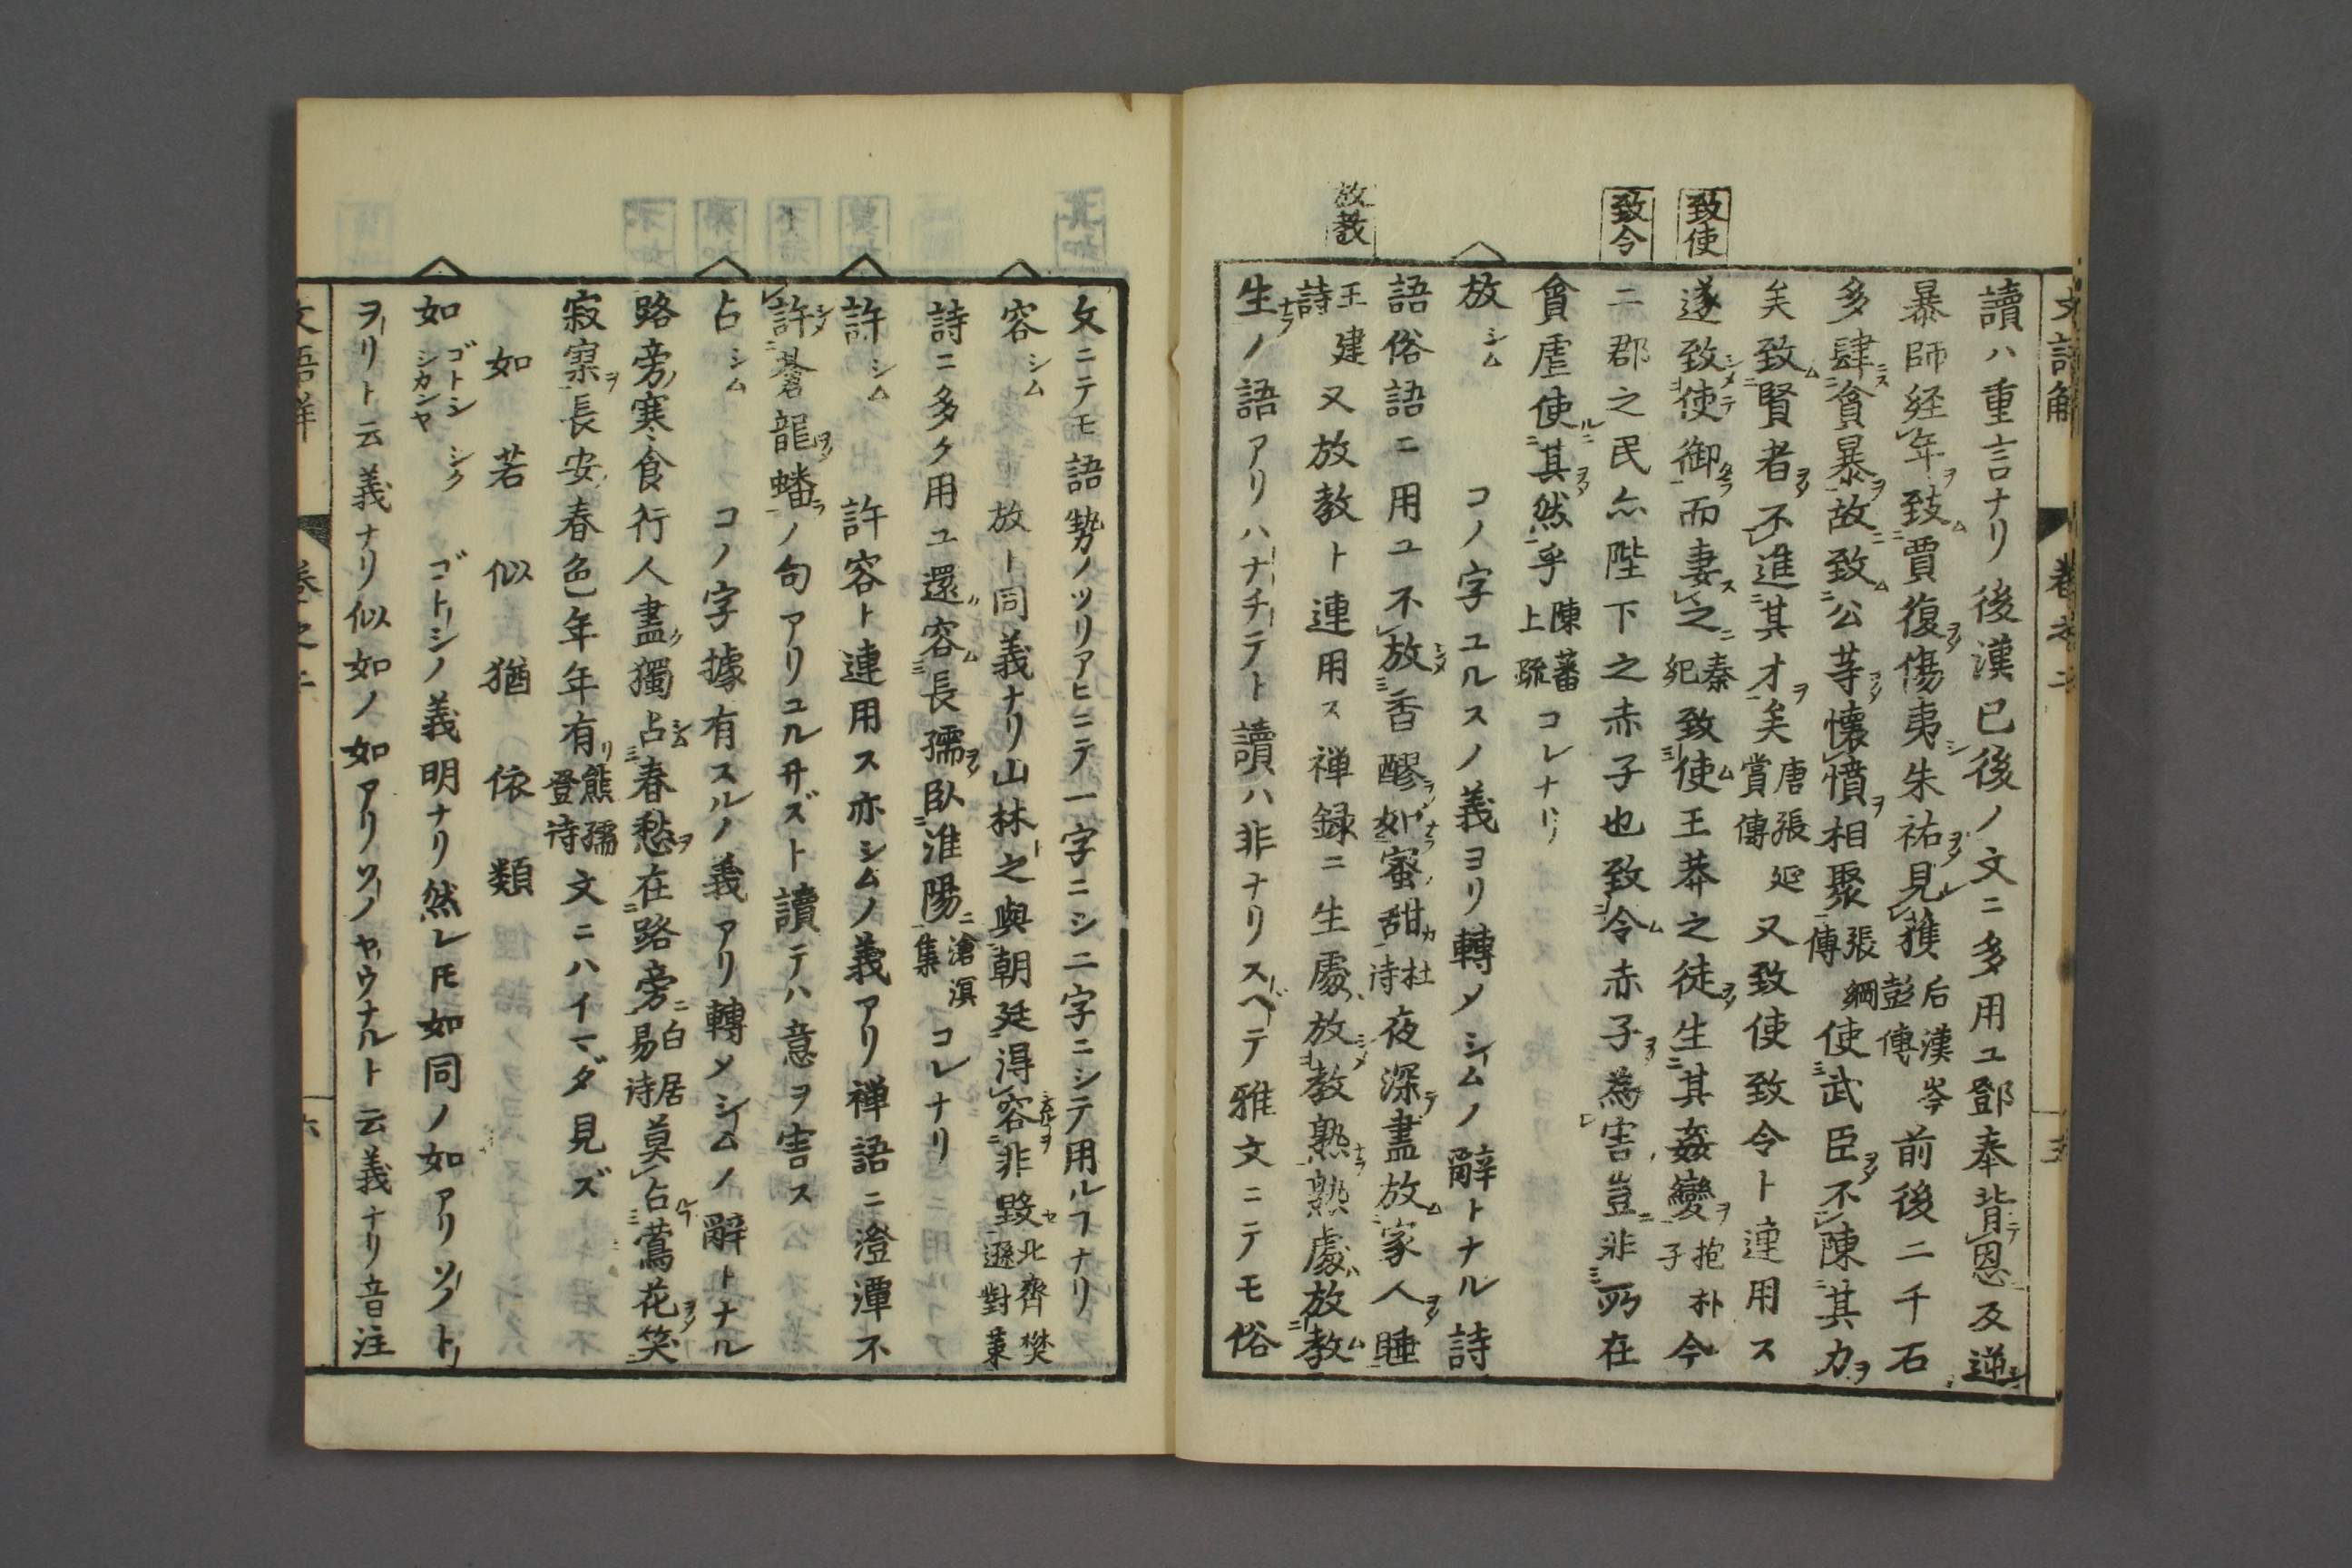 致使
致令
放教
讀ハ重言ナリ後漢已後ノ文ニ多用ユ鄧奉背恩反逆
暴師経年致賈復傷夷朱祐見獲后漢岑彭傳前後二千石
多肆貪暴故致公等懐憤相聚張綱傳使武臣不陳其力
矣致賢者不進其才矣唐張延賞傳又致使致令ト連用ス
遂致使御而妻之秦紀致使王莽之徒生其姦變抱朴子今
二郡之民亦陛下之赤子也致令赤子為害豈非所在
貪虐使其然乎陳蕃上疏コレナリ
放シム コノ字ユルスノ義ヨリ轉メシムノ辭トナル詩
語俗語ニ用ユ不放香醪如蜜甜杜詩夜深盡放家人睡
王建詩又放教ト連用ス禅録ニ生處放教熟熟處放教
生ノ語アリハナチテト讀ハ非ナリスベテ雅文ニテモ俗
文ニテモ語勢ノツリアヒニテ一字ニシ二字ニシテ用ルヿナリ
容シム 放ト同義ナリ山林之與朝廷得容非毀北齊樊遜對策
詩ニ多ク用ユ還容長孺臥淮陽滄溟集コレナリ
許シム 許容ト連用ス亦シムノ義アリ禅語ニ澄潭不
許蒼龍蟠ノ句アリユルサズト讀テハ意ヲ害ス
占シム コノ字據有スルノ義アリ轉メシムノ辭トナル
路旁寒食行人盡獨占春愁在路旁白居易詩莫占鶯花笑
寂寞長安春色年年有熊孺登詩文ニハイマダ見ズ
如 若 似 猶 依 類
如ゴトシ シク シカンヤ ゴトシノ義明ナリ然レ𪜈如同ノ如アリソノト
ヲリト云義ナリ似如ノ如アリソノヤウナルト云義ナリ音注